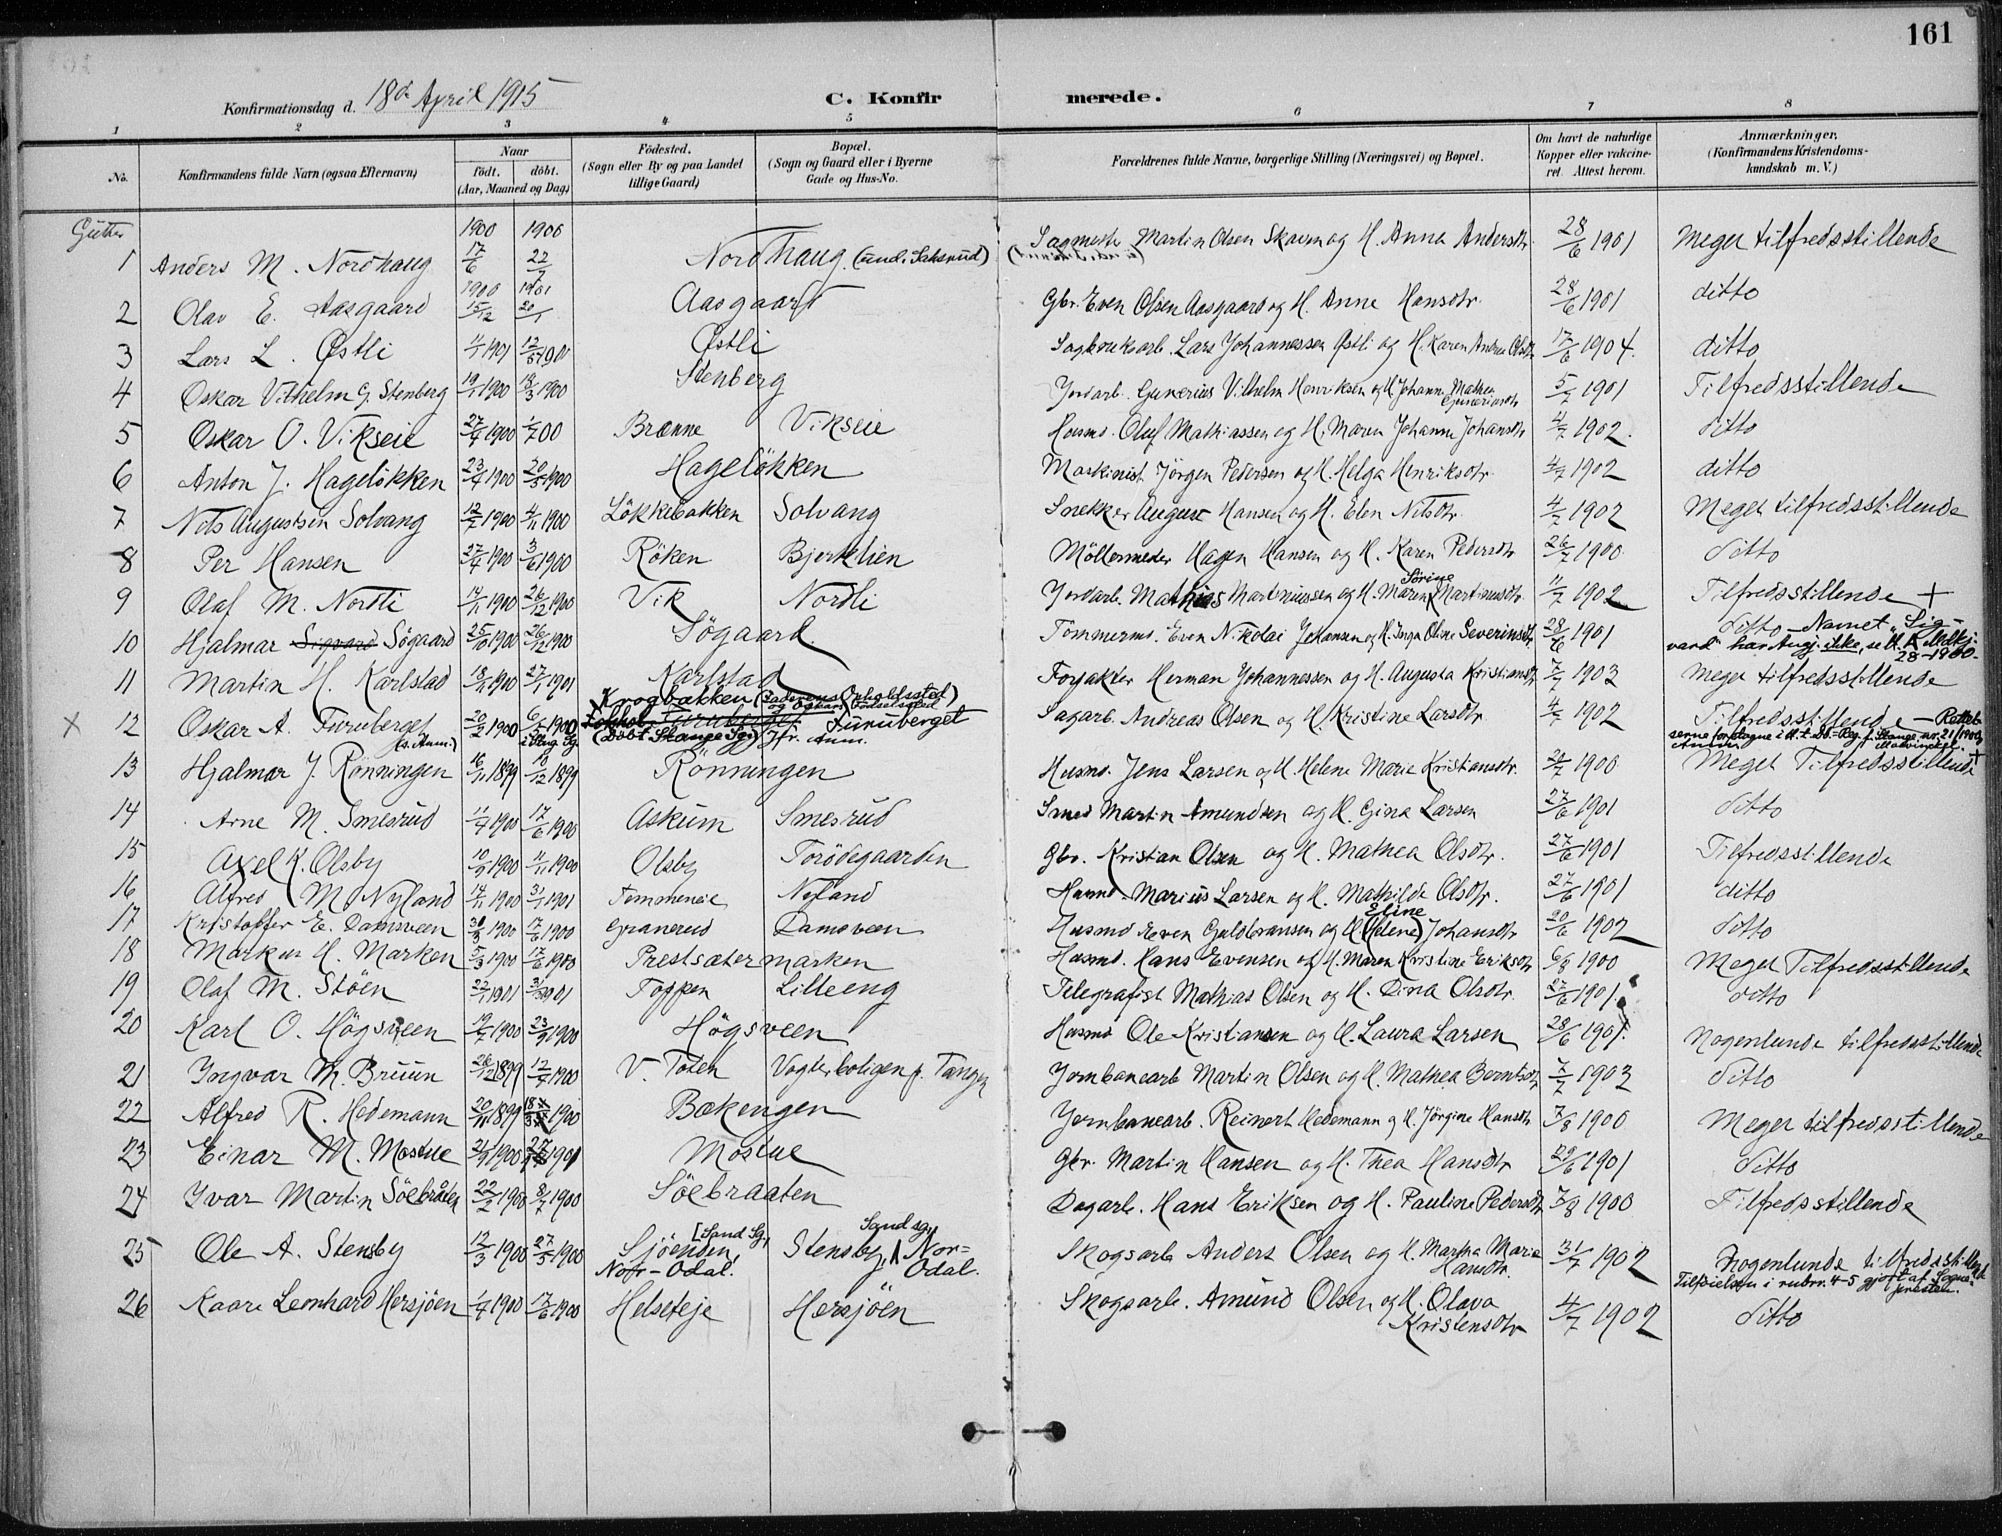 161
Konfirmationsdag d. 18de April 1915
C. Konfir merede.
1 2 3 4 5 6 7 8
No.
Konfirmandens fulde Navn (ogsaa Efternavn)
Naar
födt. döbt.
(Aar, Maaned og Dag)
Födested.
(Sogn eller By og paa Landet
tillige Gaard)
Bopæl.
(Sogn og Gaard eller i Byerne
Gade og Hus-No.
Forældrenes fulde Navne, borgerlige Stilling (Næringsvei) og Bopæl.
Om havt de naturlige
Kopper eller vakcine-
ret. Attest herom.
Anmærkninger,
(Konfirmandens Kristendoms-
kundskab m. V.)
Gutter
1 Anders M. Nordhaug 1900 17/6 1900 22/7 Nordhaug (und. Saksrud) Martin Olsen Skaven og H. Anna Andersdtr. 28/6 1901 Meget tilfredsstillende
2 Olav E. Aasgaard 1900 15/12 1901 20/1 Aasgaard Gbr. Even Olsen Aasgaard og H. Anne Hansdtr. 28/6 1901 ditto
3 Lars L. Østli Østli Sagbruksarb. Lars Johannessen Østli og H. Karen Andrea Olsdtr. 17/6 1904. ditto
4 Oskar Vilhelm G. Stenberg 19/1 1900 18/3 1900 Stenberg Jordarb. Gunerius Vilhelm Henriksen og H. Johanne Mathea Guneriusdtr 5/7 1901 Tilfredsstillende
5 Oskar O. Vikseie 27/4 1900 1/7 00 Brænne Vikseie Husmd. Oluf Mathiassen og H. Maren Johanne Johansdtr 4/7 1902. ditto
6 Anton J. Hagelökken 23/4 1900 20/5 1900 Hagelökken Maskinist Jörgen Pedersen og H. Helga Henriksdtr. 4/7 1902 ditto
7 Nils Augustsen Solvang 4/11 1900 Lökkebakken Solvang Snekker August Hansen og H. Elen Nilsdtr. 4/7 1902 Meget tilfredsstillende
8 Per Hansen 27/4 1900 3/6 1900 Röken Bjerklien Hagen Hansen og H. Karen Pedersdtr 26/7 1900 ditto
9 Olaf M. Nordli 14/11 1900 26/12 1900 Vik Nordli Jordarb. Mathias Martinussen og H. Maren Sörine Martinusdtr. 11/7 1902 Tilfredsstillende +
10 Hjalmar Sigvard Sögaard 25/10 1900 26/12 1900 Sögaard Tömmermd. Even Nikolai Johansen og H. Inga Oline Severinsdtr. 28/6 1901 ditto – Navnet "Sig-
vard" har Angj. ikke, se 28-1900
11 Martin H. Karlstad 27/1 1901 Karlstad Forpakter Herman Johannessen og H. Augusta Kristiansdtr 7/7 1903 Meget tilfredsstillende
X 12 Oskar A. Furuberget (s. Anm.) 20/2 1900 6/5 1900 i Stang Sg. Krogbakken (Faderens Opholdssted og Odkars Födselssted) (Döbt Stange Sg.) Jfr. Anm. Furuberget Sagarb. Andreas Olsen og H. Kristine Larsdtr. 4/7 1902 Tilfredsstillende –
13 Hjalmar J. Rönningen 16/11 1899 1899 Rönningen Husmd. Jens Larsen og H. Helene Marie Kristiansdtr. 1900 Meget Tilfredsstillende +
14 Arne M. Smesrud 11/4 1900 17/6 1900 Askum Smesrud Smed Martin Amundsen og H. Gina Larsen 27/6 1901 ditto
15 Axel K. Olsby 1900 4/11 1900 Olsby Torödegaarden Gbr. Kristian Olsen og H. Mathea Olsdtr. 27/6 1901 Tilfredsstillende
16 Alfred M. Nyland 14/11 1900 3/1 1901 Nyland Husmd. Marius Larsen og H. Mathilde Olsdtr. 27/6 1901 ditto
17 Kristoffer E. Damsveen 1900 17/6 1900 Granerud Damsveen Husmd Even Guldbransen og H. (Helene) Eline Johansdtr 20/6 1902 ditto
18 Markus H. Marken 5/3 1900 17/6 1900 Prestsætermarken Husmd. Hans Evensen og H. Maren Kristine Eriksdtr 6/8 1900 Meget Tilfredsstillende
19 Olaf M. Stöen 22/1 1901 1901 Toppen Lilleeng Telegrafist Mathias Olsen og H. Dina Olsdtr. 27/6 1901 ditto
20 Karl O. Högsveen 19/7 1900 23/9 1900 Högsveen Husmd Ole Kristiansen og H. Laura Larsen 28/6 1901. Nogenlunde tilfredsstillende
21 Ingvar M. Bruun 26/12 1899 1900 V. Toten Vogterboligen p. Tangen Jernbanearb Martin Olsen og H. Mathea Berntsdtr 7/7 1903 ditto
22 Alfred R. Hedemann 20/11 1899 1900 Bækengen Jernbanearb. Reinert Hedemann og H. Jörgine Hansdtr 7/8 1900 Meget tilfredsstillende
23 Einar M. Mostue 1900 1901 Mostue Gbr. Martin Hansen og H. Thea Hansdtr 29/6 1901 ditto
24 Ivar Martin Söebråten 22/2 1900 8/7 1900 Söebraaten Dagarb. Hans Eriksen og H. Pauline Pedersdtr 7/8 1900 Tilfredsstillende
25 Ole A. Stensby 12/3 1900 27/5 1900 Sjöenden, [Sand Sg.] Nor-Odal. Stensby, Sand sg. Nor-Odal. Skogsarb Anders Olsen og H. Martha Marie Hansdtr. 31/7 1902 Nogenlunde tilfredsstillende
Tilföielsen i rubr. 4-5 gjort af Sognepresten.
26 Kaare Leonhard Hersjöen 1/4 1900 17/6 1900 Helseteje Hersjöen Skogsarb. Amund Olsen og H. Olava Kristensdtr 4/7 1902 ditto